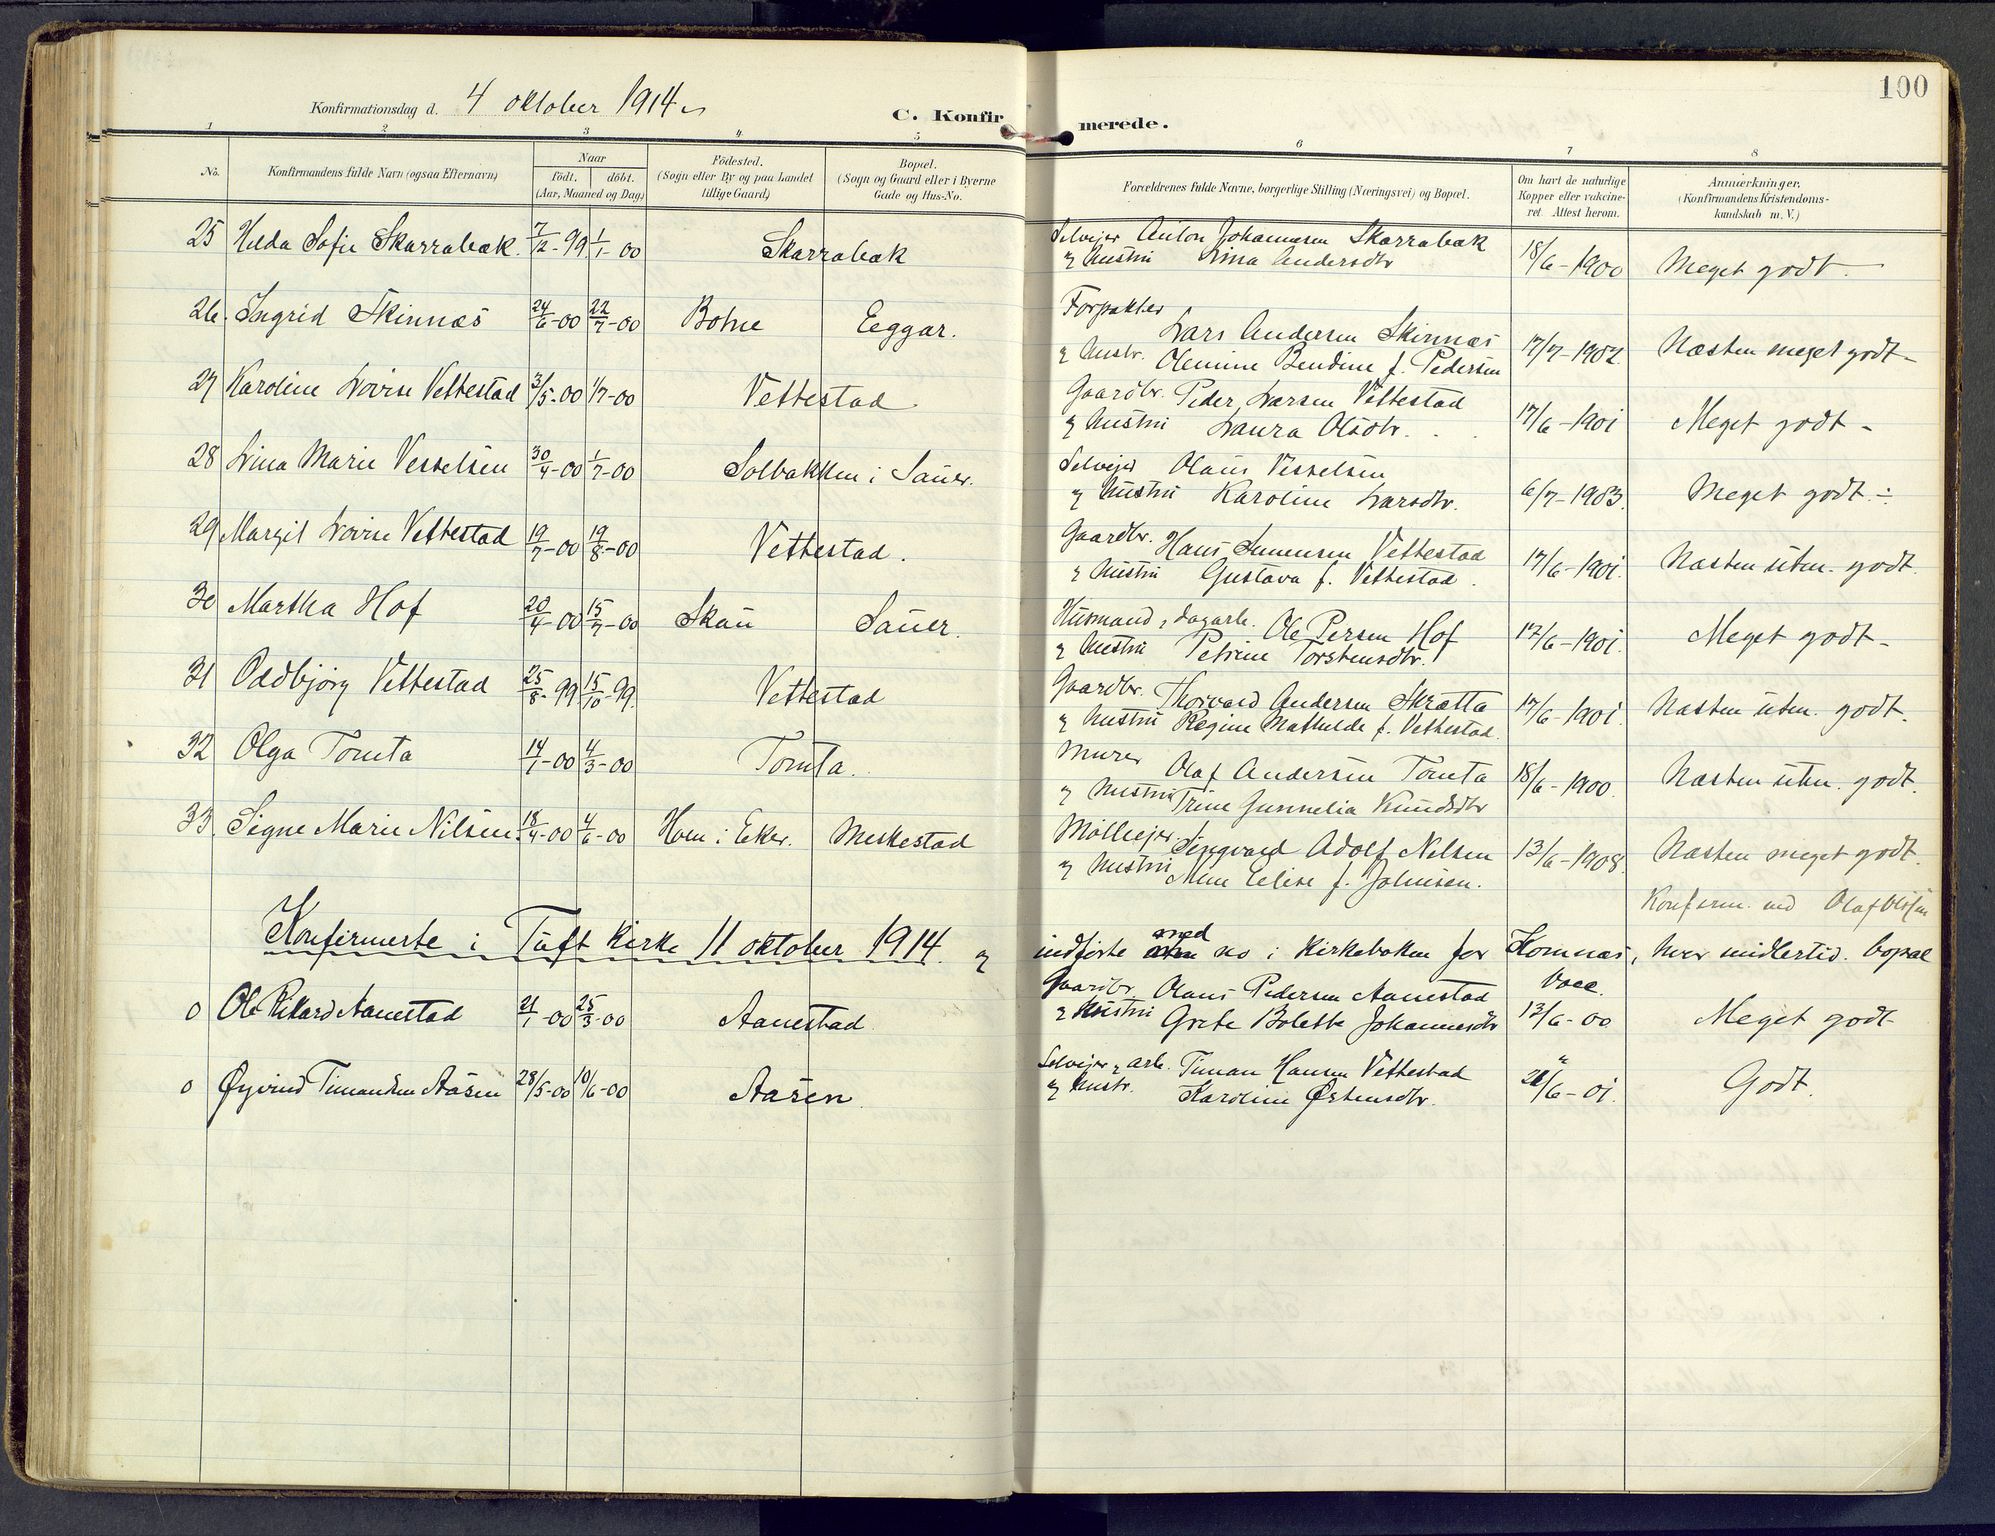 100
Konfirmationsdag d. 4 oktober 1914
C. Konfirmerede.
1 2 3 4 5 6 7 8
No.
Konfirmandens fulde Navn (ogsaa Efternavn)
Naar
födt. döbt.
(Aar, Maaned og Dag)
Födested.
(Sogn eller By og paa Landet
tillige Gaard)
Bopæl.
(Sogn og Gaard eller i Byerne
Gade og Hus-No.
Forældrenes fulde Navne, borgerlige Stilling (Næringsvei) og Bopæl.
Om havt de naturlige
Kopper eller vakcine-
ret Attest herom.
Anmærkninger.
(Konfirmandens Kristendoms-
kundskab m. V.)
25 Hilda Sofie Skarrabæk. 7/12-99 1/1-00 Skarrabæk Selvejer Anton Johannesen Skarrabæk 18/6-1900 Meget godt.
& Hustru Lina Andersdtr
26. Ingrid Skinnæs 24/6-00 22/7-00 Botne Eeggar. Forpakter
Lars Andersen Skinnæs 17/7-1902 Næsten meget godt-
& Hustr. Olemine Bendine f. Pedersen
27 Karoline Lovise Vettestad 3/5-00 1/7-00 Vettestad Gaardbr. Peder Larsen Vettestad 17/6-1901 Meget godt -
& Hustru Laura Olsdtr.
28 Lina Marie Vesselsen 30/4-00 1/7-00 Solbakken i Sauer. Selvejer Olaus Vesselsen 6/7-1903 Meget godt. ÷
& Hustru Karoline Larsdtr.
29 Margit Lovise Vettestad 19/7-00 19/8-00 Vettestad. Gaardbr. Hans Simensen Vettestad 17/6-1901. Næsten uten. godt.
& Hustru Gustava f. Vettestad.
30 Martha Hof 20/4-00 15/7-00 Skau Sauer. Husmand, dagarb. Ole Persen Hof 17/6-1901. Meget godt-
& Hustru Petrine Torstensdtr.
31 Oddbjörg Vettestad 25/8-99 15/10-99. Vettestad Gaardbr. Thorvard Andersen Skrætta 17/6-1901. Næsten uten. godt.
& Hustru Regine Mathilde f. Vettestad.
32 Olga Tomta 14/1-00 4/3-00 Tomta. Murer Olaf Andersen Tomta 18/6-1900. Næsten uten. godt.
& Hustru Trine Gunnelia Knudsdtr
33. Signe Marie Nilsen. 18/4-00 4/6-00 Hem i Eker. Meskestad Mölleejer Singvard Adolf Nilsen 13/6-1908. Næsten meget godt.
& Hustru Elise f. Johnsen.
Konferm. ved Olaf Olsen
Konfirmerte i Tuft kirke 11 oktober 1914. & indförte med no i kirkeboken for Komnæs, hver midlertid. bopæl
0 Ole Rikard Aanestad 21/1-00 25/3-00 Aanestad. Gaardbr. Olaus Pedersen Aanestad Vacc. 12/6-00 Meget godt
& Hustru Grete Bolette Johannesdtr
0 Øyvind Timandsen Aasen 28/5-00 10/6-00 Aasen. Selvejer, arb. Timan Hansen Vettestad " 21/6-01. Godt.
& Hustr. Karoline Østensdtr.